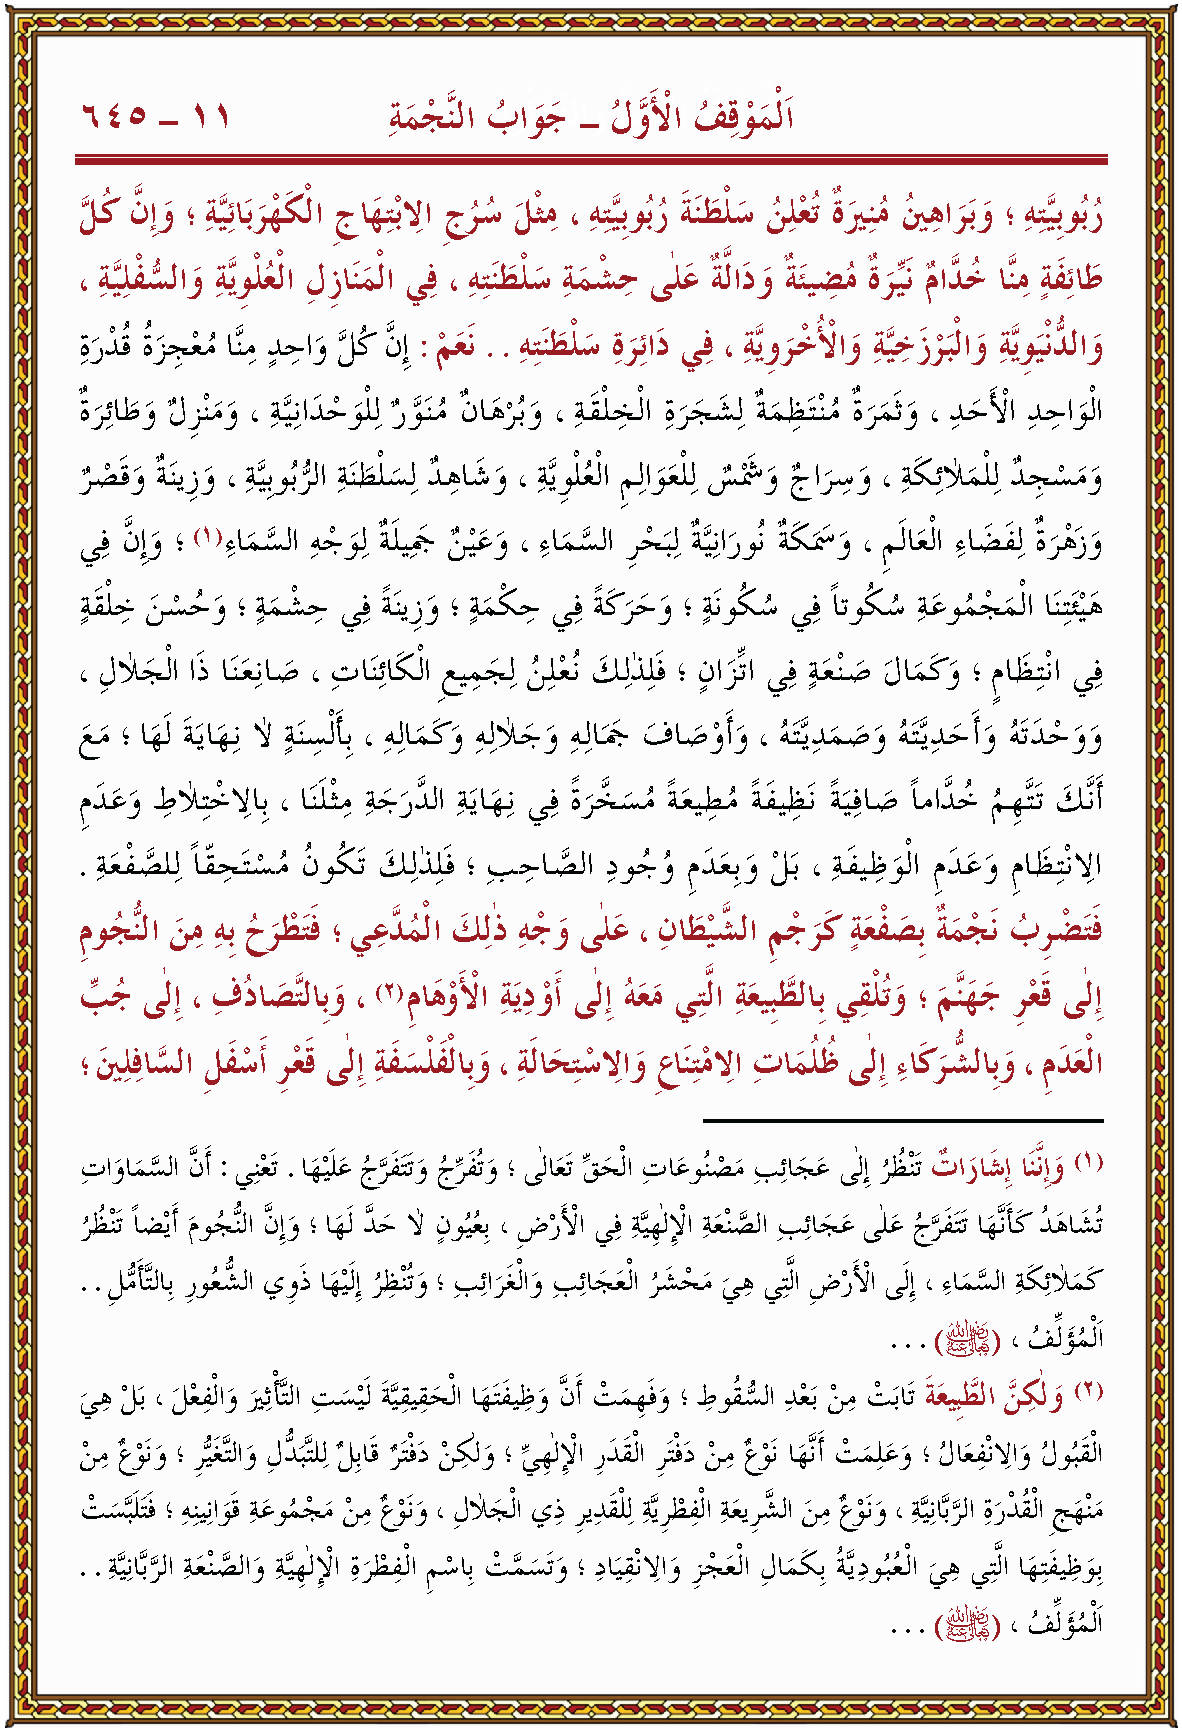 اَلْمَوْقِفُ الْأَوَّلُ ــ جَوَابُ النَّجْمَةِ ١١ ــ ٦٤٥
رُبُوبِيَّتِهِ ؛ وَبَرَاهِينُ مُنِيرَةٌ تُعْلِنُ سَلْطَنَةَ رُبُوبِيَّتِهِ ، مِثْلَ سُرُجِ الِابْتِهَاجِ الْكَهْرَبَائِيَّةِ ؛ وَإِنَّ كُلَّ
طَائِفَةٍ مِنَّا خُدَّامٌ نَيِّرَةٌ مُضِيئَةٌ وَدَالَّةٌ عَلٰى حِشْمَةِ سَلْطَنَتِهِ ، فِي الْمَنَازِلِ الْعُلْوِيَّةِ وَالسُّفْلِيَّةِ ،
وَالدُّنْيَوِيَّةِ وَالْبَرْزَخِيَّةِ وَالْأُخْرَوِيَّةِ ، فِي دَائِرَةِ سَلْطَنَتِهِ . . نَعَمْ : إِنَّ كُلَّ وَاحِدٍ مِنَّا مُعْجِزَةُ قُدْرَةِ
الْوَاحِدِ الْأَحَدِ ، وَثَمَرَةٌ مُنْتَظِمَةٌ لِشَجَرَةِ الْخِلْقَةِ ، وَبُرْهَانٌ مُنَوَّرٌ لِلْوَحْدَانِيَّةِ ، وَمَنْزِلٌ وَطَائِرَةٌ
وَمَسْجِدٌ لِلْمَلٰائِكَةِ ، وَسِرَاجٌ وَشَمْسٌ لِلْعَوَالِمِ الْعُلْوِيَّةِ ، وَشَاهِدٌ لِسَلْطَنَةِ الرُّبُوبِيَّةِ ، وَزِينَةٌ وَقَصْرٌ
وَزَهْرَةٌ لِفَضَاءِ الْعَالَمِ ، وَسَمَكَةٌ نُورَانِيَّةٌ لِبَحْرِ السَّمَاءِ ، وَعَيْنٌ جَمِيلَةٌ لِوَجْهِ السَّمَاءِ(١) ؛ وَإِنَّ فِي
هَيْئَتِنَا الْمَجْمُوعَةِ سُكُوتاً فِي سُكُونَةٍ ؛ وَحَرَكَةً فِي حِكْمَةٍ ؛ وَزِينَةً فِي حِشْمَةٍ ؛ وَحُسْنَ خِلْقَةٍ
فِي انْتِظَامٍ ؛ وَكَمَالَ صَنْعَةٍ فِي اتِّزَانٍ ؛ فَلِذٰلِكَ نُعْلِنُ لِجَمِيعِ الْكَائِنَاتِ ، صَانِعَنَا ذَا الْجَلٰالِ ،
وَوَحْدَتَهُ وَأَحَدِيَّتَهُ وَصَمَدِيَّتَهُ ، وَأَوْصَافَ جَمَالِهِ وَجَلٰالِهِ وَكَمَالِهِ ، بِأَلْسِنَةٍ لٰا نِهَايَةَ لَهَا ؛ مَعَ
أَنَّكَ تَتَّهِمُ خُدَّاماً صَافِيَةً نَظِيفَةً مُطِيعَةً مُسَخَّرَةً فِي نِهَايَةِ الدَّرَجَةِ مِثْلَنَا ، بِالِاخْتِلٰاطِ وَعَدَمِ
الِانْتِظَامِ وَعَدَمِ الْوَظِيفَةِ ، بَلْ وَبِعَدَمِ وُجُودِ الصَّاحِبِ ؛ فَلِذٰلِكَ تَكُونُ مُسْتَحِقّاً لِلصَّفْعَةِ .
فَتَضْرِبُ نَجْمَةٌ بِصَفْعَةٍ كَرَجْمِ الشَّيْطَانِ ، عَلٰى وَجْهِ ذٰلِكَ الْمُدَّعِي ؛ فَتَطْرَحُ بِهِ مِنَ النُّجُومِ
إِلٰى قَعْرِ جَهَنَّمَ ؛ وَتُلْقِي بِالطَّبِيعَةِ الَّتِي مَعَهُ إِلٰى أَوْدِيَةِ الْأَوْهَامِ(٢) ، وَبِالتَّصَادُفِ ، إِلٰى جُبِّ
الْعَدَمِ ، وَبِالشُّرَكَاءِ إِلٰى ظُلُمَاتِ الِامْتِنَاعِ وَالِاسْتِحَالَةِ ، وَبِالْفَلْسَفَةِ إِلٰى قَعْرِ أَسْفَلِ السَّافِلِينَ ؛
(١) وَإِنَّنَا إِشَارَاتٌ تَنْظُرُ إِلٰى عَجَائِبِ مَصْنُوعَاتِ الْحَقِّ تَعَالٰى ؛ وَتُفَرِّجُ وَتَتَفَرَّجُ عَلَيْهَا . تَعْنِي : أَنَّ السَّمَاوَاتِ
تُشَاهَدُ كَأَنَّهَا تَتَفَرَّجُ عَلٰى عَجَائِبِ الصَّنْعَةِ الْإِلٰهِيَّةِ فِي الْأَرْضِ ، بِعُيُونٍ لٰا حَدَّ لَهَا ؛ وَإِنَّ النُّجُومَ أَيْضاً تَنْظُرُ
كَمَلٰائِكَةِ السَّمَاءِ ، إِلَى الْأَرْضِ الَّتِي هِيَ مَحْشَرُ الْعَجَائِبِ وَالْغَرَائِبِ ؛ وَتُنْظِرُ إِلَيْهَا ذَوِي الشُّعُورِ بِالتَّأَمُّلِ . .
اَلْمُؤَلِّفُ ، (رَضِيَ اللّٰهُ تَعَالٰى عَنْهُ) . . .
(٢) وَلٰكِنَّ الطَّبِيعَةَ تَابَتْ مِنْ بَعْدِ السُّقُوطِ ؛ وَفَهِمَتْ أَنَّ وَظِيفَتَهَا الْحَقِيقِيَّةَ لَيْسَتِ التَّأْثِيرَ وَالْفِعْلَ ، بَلْ هِيَ
الْقَبُولُ وَالِانْفِعَالُ ؛ وَعَلِمَتْ أَنَّهَا نَوْعٌ مِنْ دَفْتَرِ الْقَدَرِ الْإِلٰهِيِّ ؛ وَلٰكِنْ دَفْتَرٌ قَابِلٌ لِلتَّبَدُّلِ وَالتَّغَيُّرِ ؛ وَنَوْعٌ مِنْ
مَنْهَجِ الْقُدْرَةِ الرَّبَّانِيَّةِ ، وَنَوْعٌ مِنَ الشَّرِيعَةِ الْفِطْرِيَّةِ لِلْقَدِيرِ ذِي الْجَلٰالِ ، وَنَوْعٌ مِنْ مَجْمُوعَةِ قَوَانِينِهِ ؛ فَتَلَبَّسَتْ
بِوَظِيفَتِهَا الَّتِي هِيَ الْعُبُودِيَّةُ بِكَمَالِ الْعَجْزِ وَالِانْقِيَادِ ؛ وَتَسَمَّتْ بِاسْمِ الْفِطْرَةِ الْإِلٰهِيَّةِ وَالصَّنْعَةِ الرَّبَّانِيَّةِ . .
اَلْمُؤَلِّفُ ، (رَضِيَ اللّٰهُ تَعَالٰى عَنْهُ) . . .